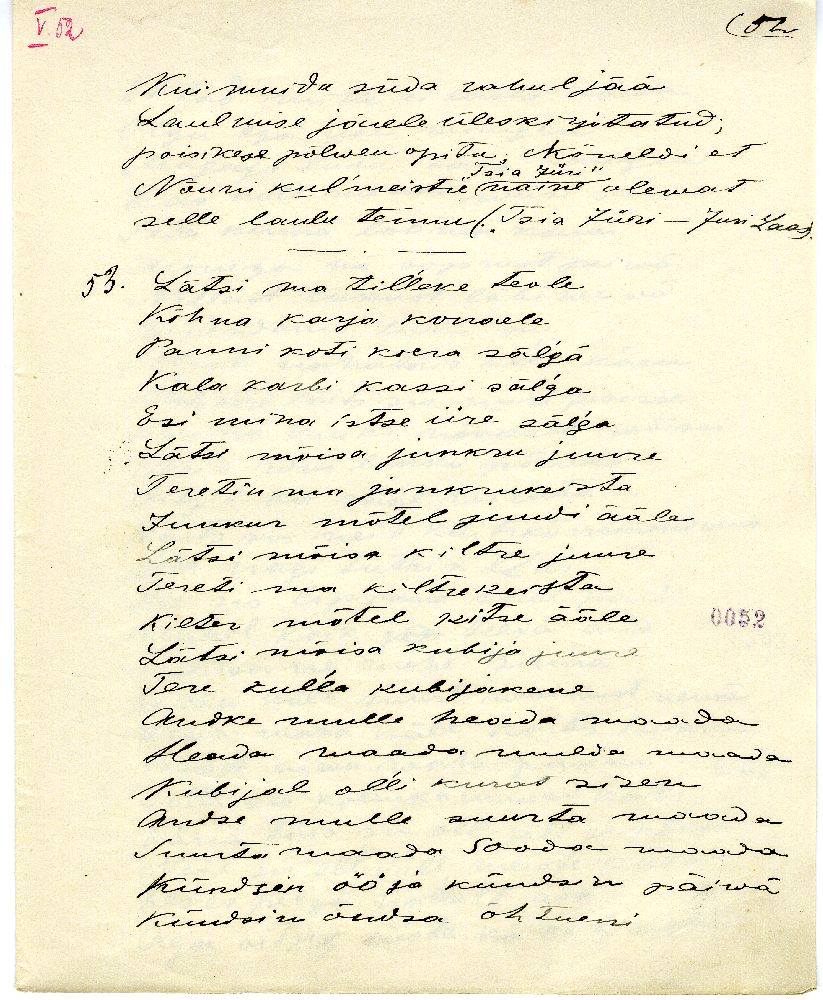 V.52
(52
Kui muidu süda rahul jää
Laulmise jõuele üleskirjotatud;
poisikese põlwen opitu. Kõneldi et
"Tsia Jüri"
Nõuni kul'meistre naine olewat
selle laulu tennu (Tsia Jüri — Juri Laas).
53. Lätsi ma til'leke teole
Kõhna karja konnole
Panni koti koera sälgä
Kala karbi kassi sälga
Esi mina istse iire sälga
Lätsi mõisa junkru juure
Teretin ma junkrukeista
Junkur mõtel juudi ääle
Lätsi mõisa kiltre juure
Tereti ma kiltrekeista
Kilter mõtel kitse ääle
0052
Lätsi mõisa kubija juure
Tere kul'la kubijakene
Andke mulle heada maada
Heada maada mulda maada
Kubijal ol'li kurat sisen
Andse mulle suurta maada
Suurta maada Sooda maada
Kündsin öö ja kündsin päiwä
Kündsin õndsa õhtueni